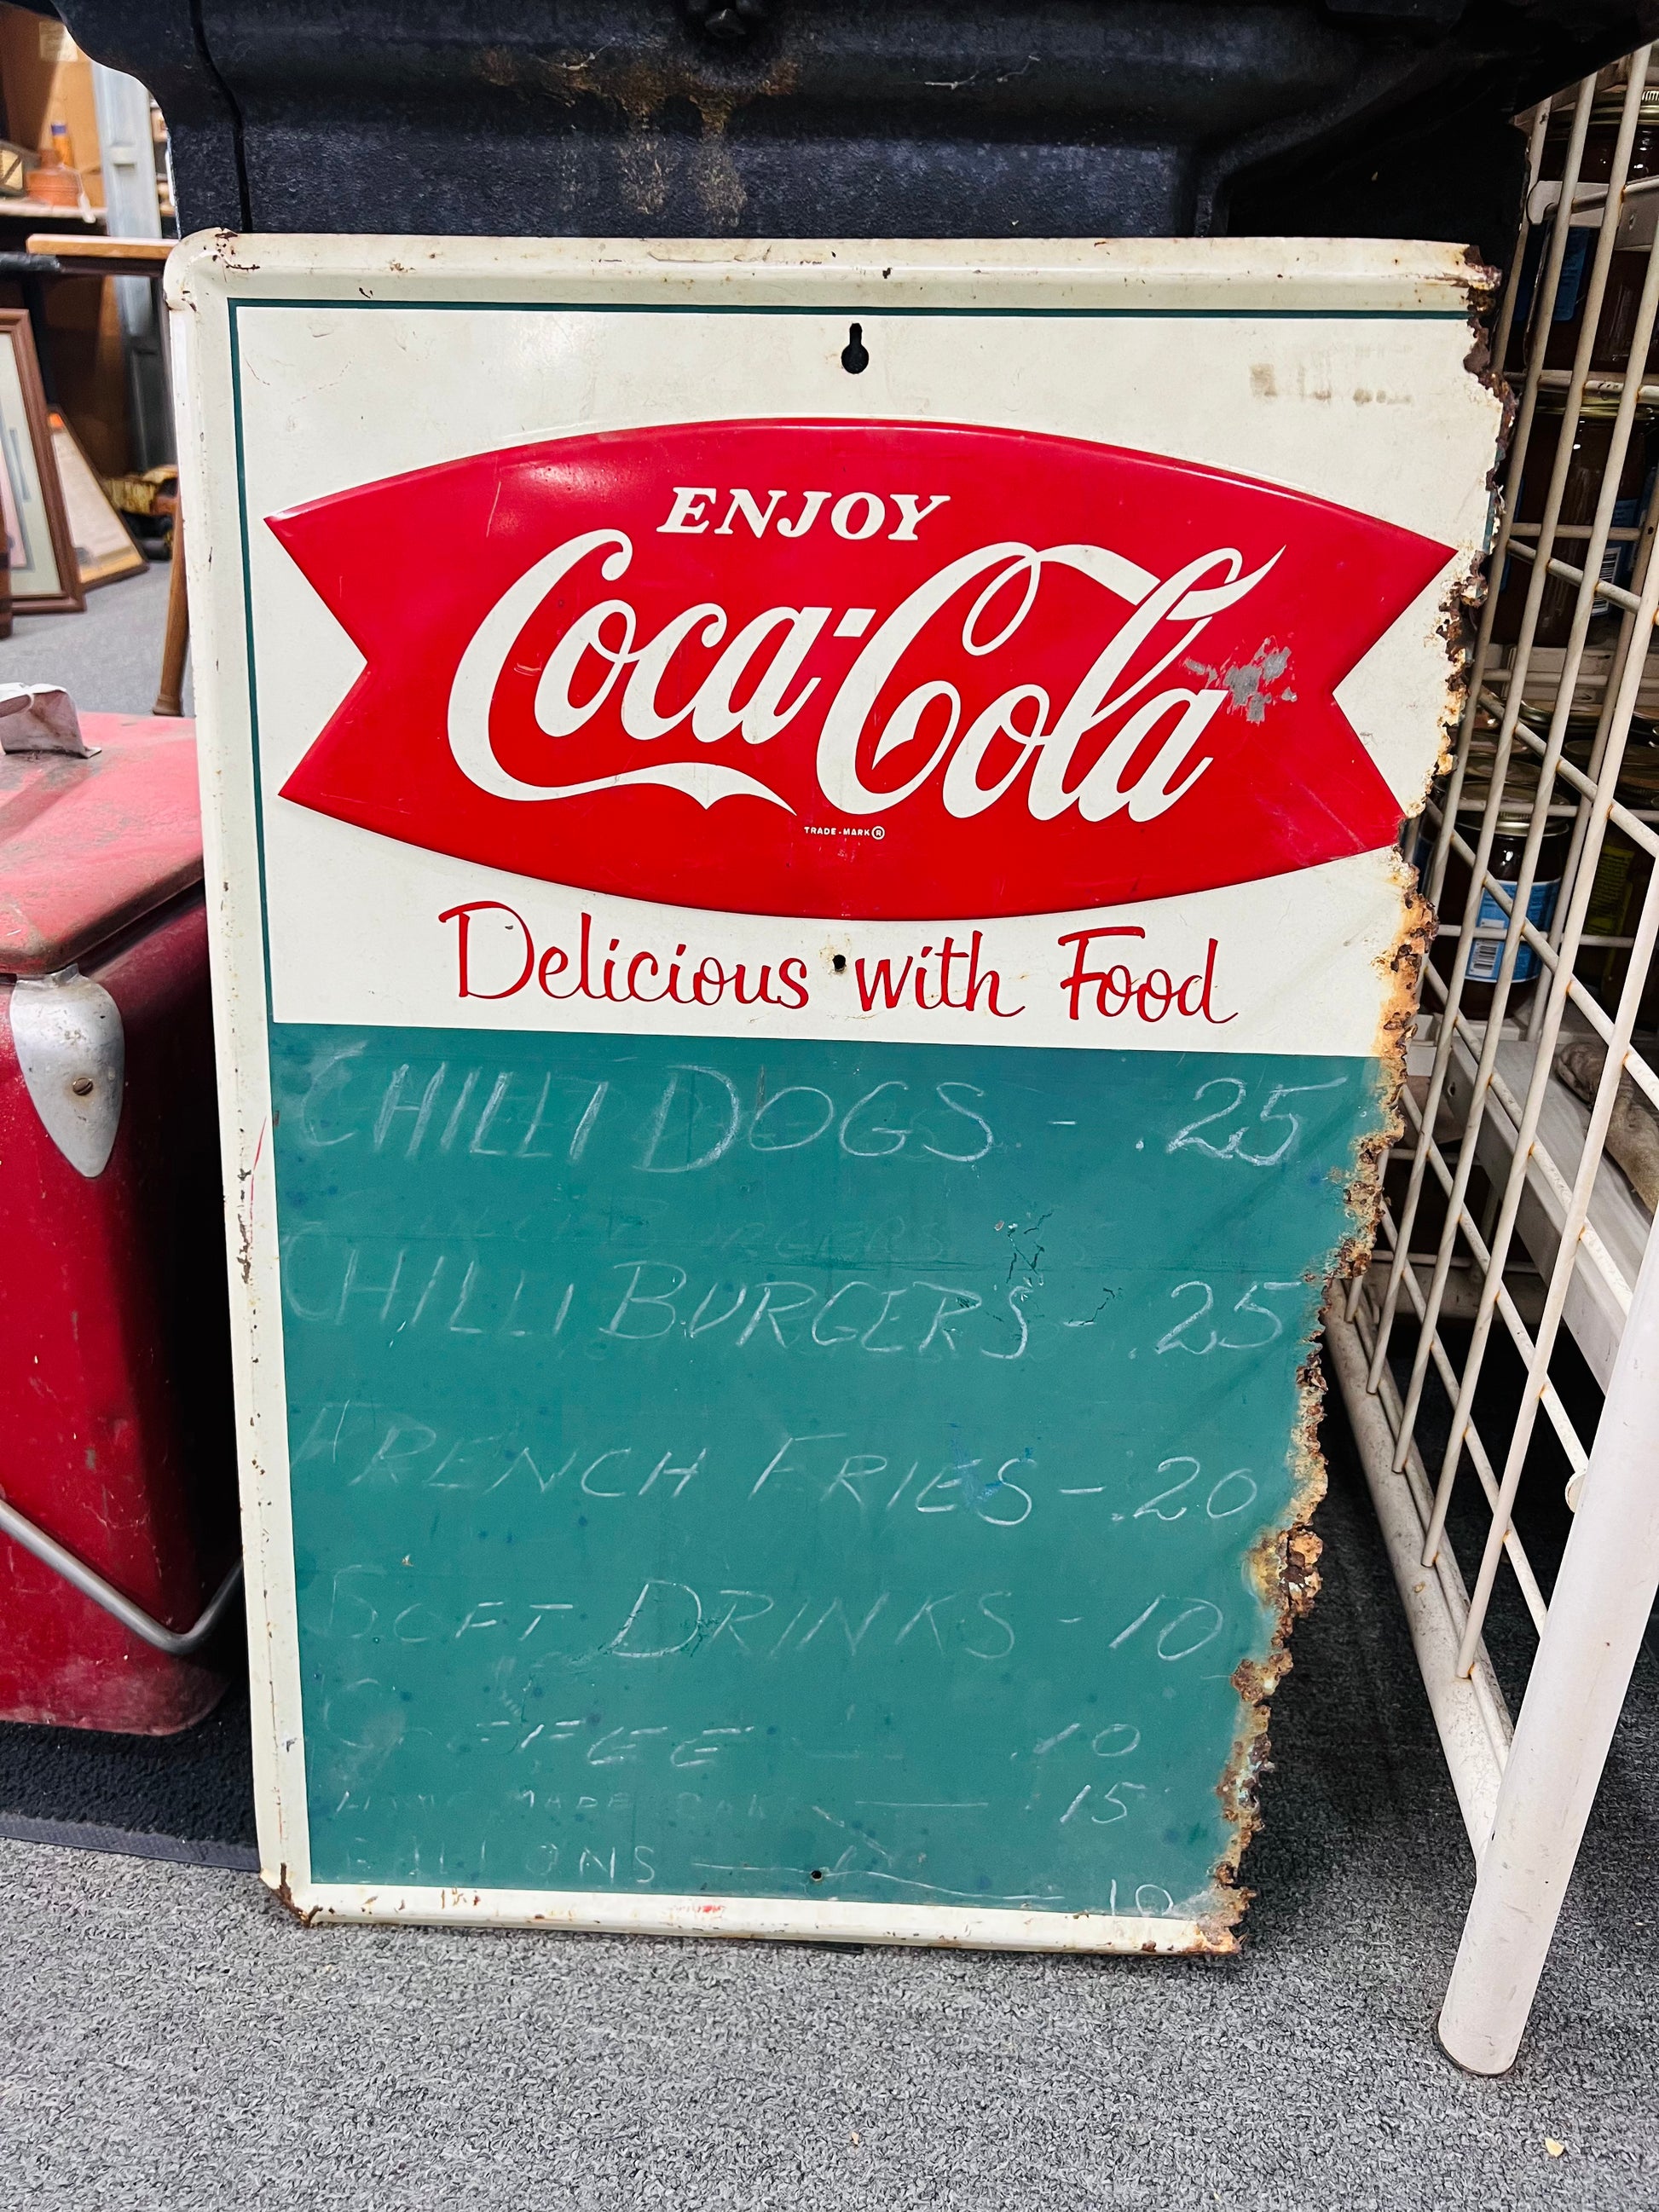 ENJOY
Coca-Cola
TRADE-MARK ®
Delicious with Food
CHILLI DOGS - .25
CHILLI BURGERS - .25
FRENCH FRIES - .20
SOFT DRINKS - 10
COFFEE — .10
MADE — 15
— 10